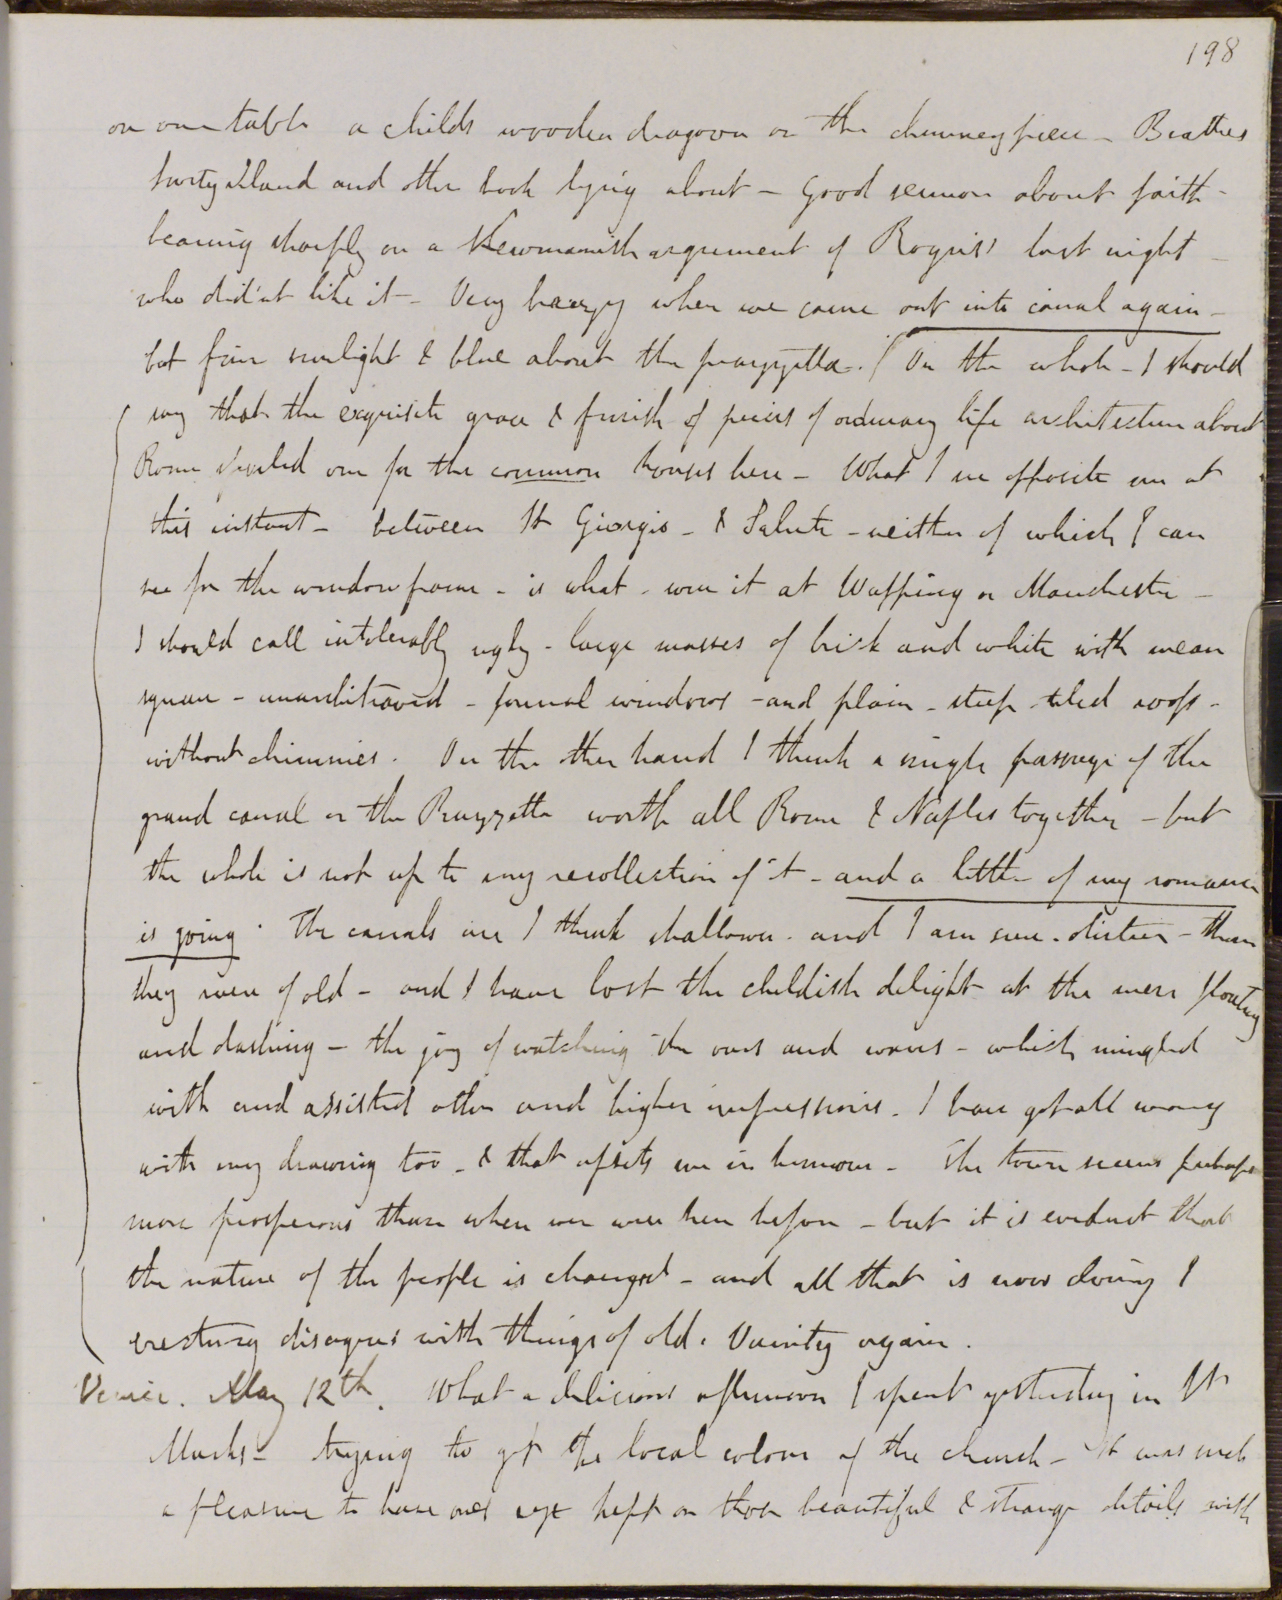 198
on one table a childs wooden dragoon on the chimneypiece - Beatties
and other book lying about - Good sermon about faith -
bearing sharply on a Newmanish argument of last night -
who did'nt like it - Very happy when we came out into canal again -
but fine sunlight & blue about the piazzetta. On the whole - I should
say that the exquisite grace & finish of pieces of ordinary life architecture about
Rome spoiled one for the common houses here - What I see opposite me at
this instant - between St Giorgio - & Salute - neither of which I can
see for the window frame - is what - were it at Wapping or Manchester -
I should call intolerably ugly - large masses of brick and white with mean
square - unarchitraved - formal windows - and plain - steep tiled roofs -
without chimnies. On the other hand I think a single passage of the
grand canal or the Piazzetta worth all Rome & Naples together - but
the whole is not up to my recollection of it - and a little of my romance
is going. The canals are I think shallower - and I am sure - dirtier - than
they were of old - and I have lost the childish delight at the mere floating
and dashing - the joy of watching the oars and waves - which mingled
with and assisted other and higher impressions. I have got all wrong
with my drawing too - & that upsets me in humour - The town seems perhaps
more prosperous than when we were here before - but it is evident that
the nature of the people is changed - and all that is now doing &
disagrees with things of old. Vanity again.
Venice. May 12th. What a delicious afternoon I spent yesterday in St
Marks - trying to get the local colour of the church - It was such
a pleasure to have ones eye kept on those beautiful & strange details with